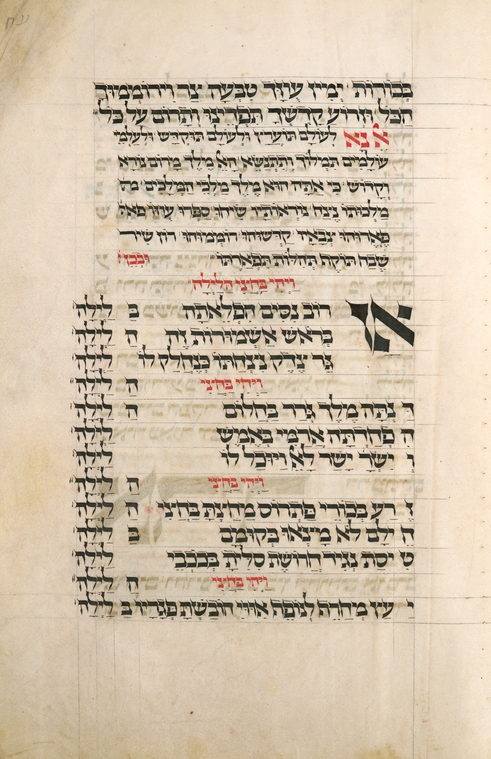 בכורות ימין עוזר טבעה צר וירוממוך
הבל וזרוע קדשך תפרינו ותרום על כל
אנא לעולם תוערץ ולעולם תוקדש ולעולמי
עולמים תמלוך ותתנשא הא מלך מרום נורא
וקדוש כי אתה הוא מלך מלכי המלכים מה
מלכותו נצח נוראותיו שיחו ספרו עוזו פאר
פארוהו צבאיו קדשוהו רוממוהו רון שיר
שבח תוקף תהלות תפארתו ובכן
ויהי בחצי הלילה
אז רוב נסים הפלאתה ב לילה
בראש אשמורות זה ה לילה
גר צדק נצחתו כנחלק לו לילה
ויהי בחצי ה לילה
ד נתה מלך גרר בחלום ה לילה
ה פחדתה ארמי באמש לילה
ו ישר ישר לאל ויוכל לו לילה
ויהי בחצי ה לילה
ז רע בכורי פתרוס מחצת בחצי ה לילה
ח ילם לא מצאו בקומם ב לילה
ט יסת נגיד חרושת סלית בכוכבי לילה
ויהי בחצי ה לילה
י עץ מחרף לנופף איווי הובשת פגריו ב לילה